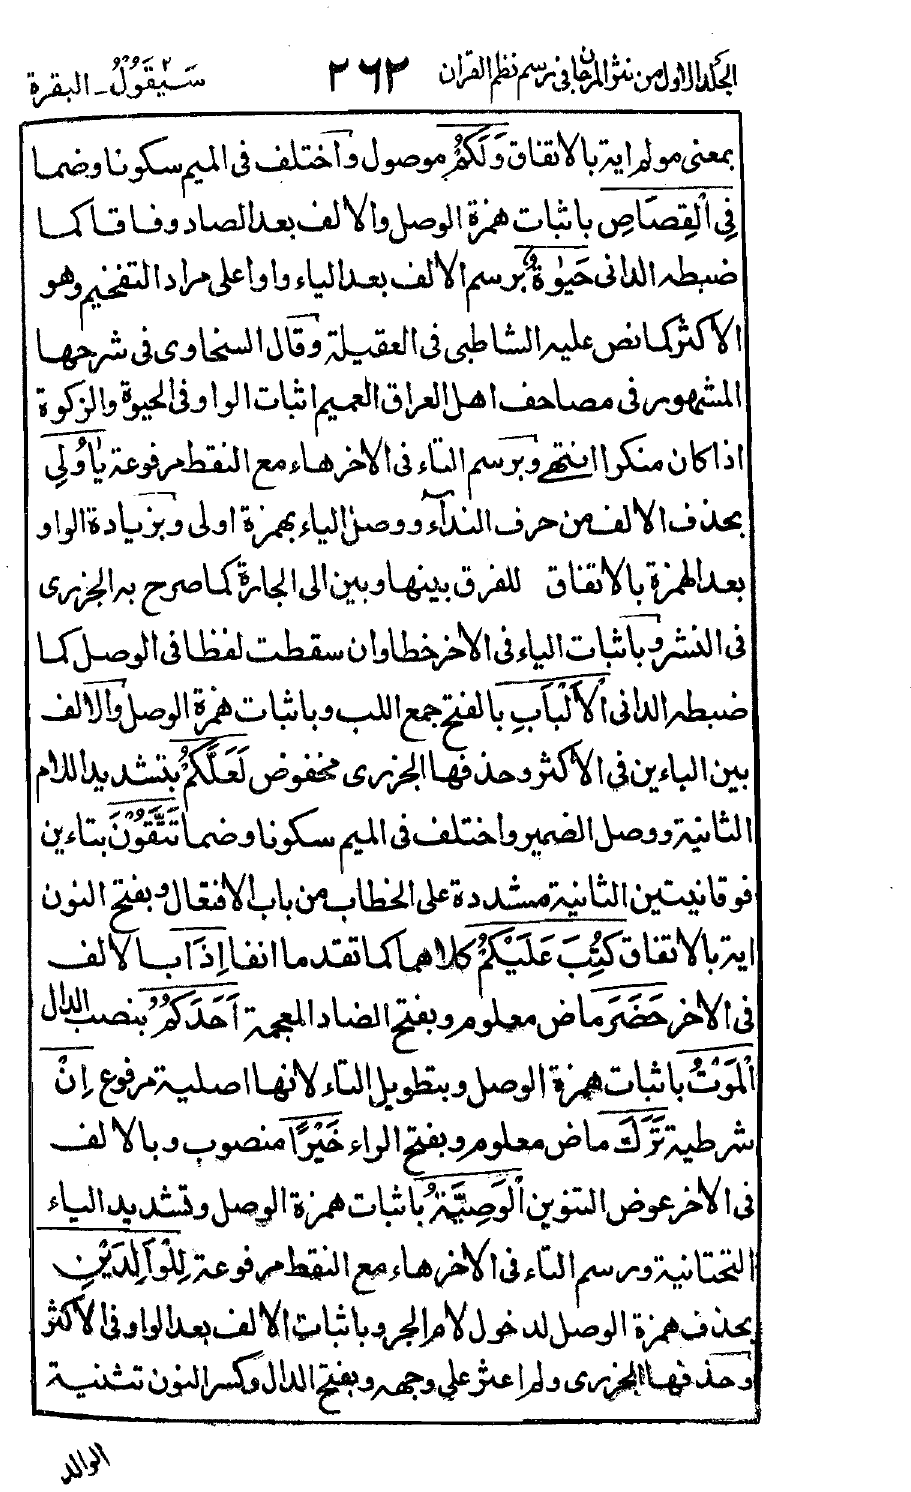 الجلد الاول من نثر المرجان فى رسم نظم القران ٢٦٢ سَيَقُوْلُ ٢ - البقرة
بمعنى مولم اية بالاتفاق وَلَكُمْ موصول واختلف فى الميم سكونا وضما
فِى الْقِصَاصِ باثبات همزة الوصل والالف بعد الصاد وفاقا كما
ضبطه الدانى حَيٰوةٌ برسم الالف بعد الياء واوا على مراد التفخيم وهو
الاكثر كما نص عليه الشاطبى فى العقيلة وقال السخاوى فى شرحها
المشهور فى مصاحف اهل العراق العميم اثبات الواو فى الحيوة والزكوة
اذا كان منكرا انتهى وبرسم التاء فى الاخر هاء مع النقط مرفوعة يٰاُولِى
بحذف الالف من حرف النداء ووصل الياء بهمزة اولى وبزيادة الواو
بعد الهمزة بالاتفاق للفرق بينها وبين الى الجارة كما صرح به الجزرى
فى النشر وباثبات الياء فى الاخر خطا وان سقطت لفظا فى الوصل كما
ضبطه الدانى الْاَلْبَابِ بالفتح جمع اللب وباثبات همزة الوصل والالف
بين الباءين فى الاكثر وحذفها الجزرى مخفوض لَعَلَّكُمْ بتشديد اللام
الثانية ووصل الضمير واختلف فى الميم سكونا وضما تَتَّقُوْنَ بتاءين
فوقانيتين الثانية مشددة على الخطاب من باب الافتعال وبفتح النون
اية بالاتفاق كُتِبَ عَلَيْكُمْ كلاهما كما تقدما انفا اِذَا بالالف
فى الاخر حَضَرَ ماض معلوم وبفتح الضاد المعجمة اَحَدَكُمُ بنصب الدال
الْمَوْتُ باثبات همزة الوصل وبتطويل التاء لانها اصلية مرفوع اِنْ
شرطية تَرَكَ ماض معلوم وبفتح الراء خَيْرًا منصوب وبالالف
فى الاخر عوض التنوين الْوَصِيَّةُ باثبات همزة الوصل وتشديد الياء
التحتانية ورسم التاء فى الاخر هاء مع النقط مرفوعة لِلْوَالِدَيْنِ
بحذف همزة الوصل لدخول لام الجر وباثبات الالف بعد الواو فى الاكثر
وحذفها الجزرى ولم اعثر على وجهه وبفتح الدال وكسر النون تثنية
الوالد